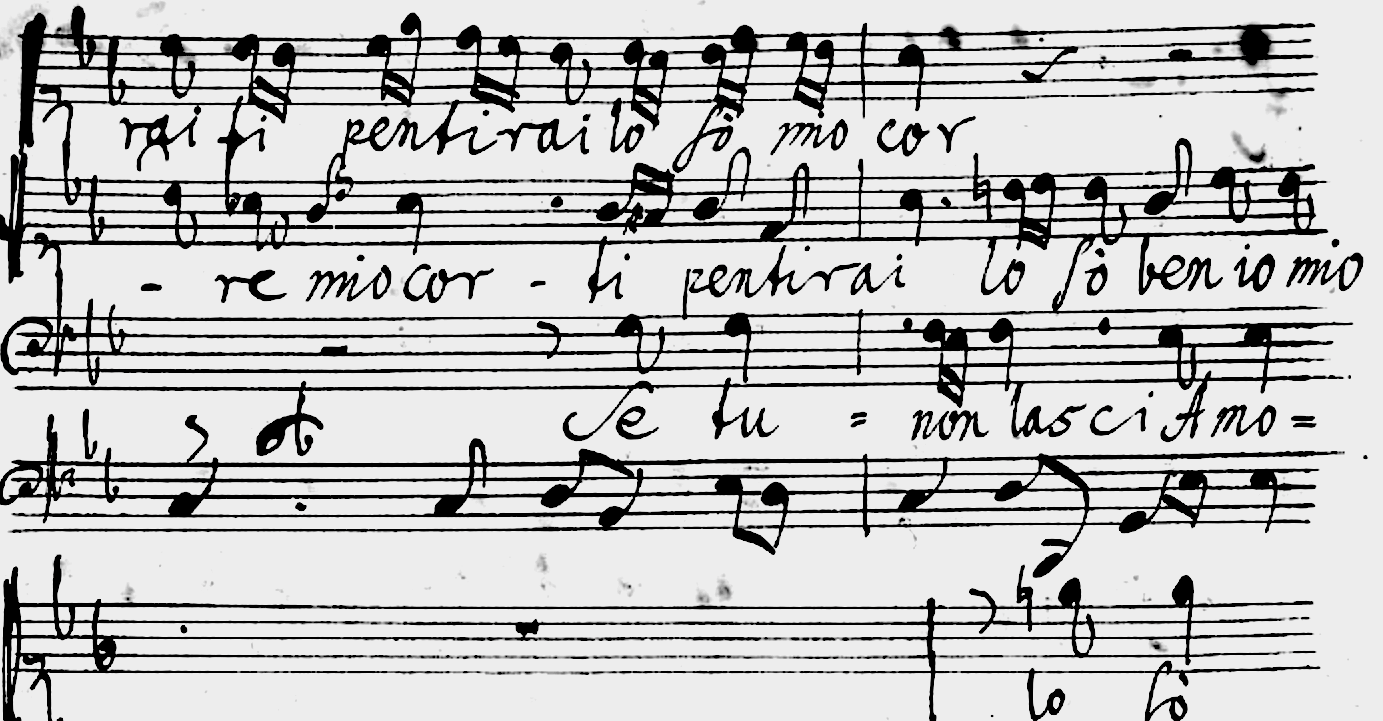 rai ti pentirai lo sò mio cor
- re mio cor - ti pentirai lo sò ben io mio
Se tu = non lasci Amo =
lo sò